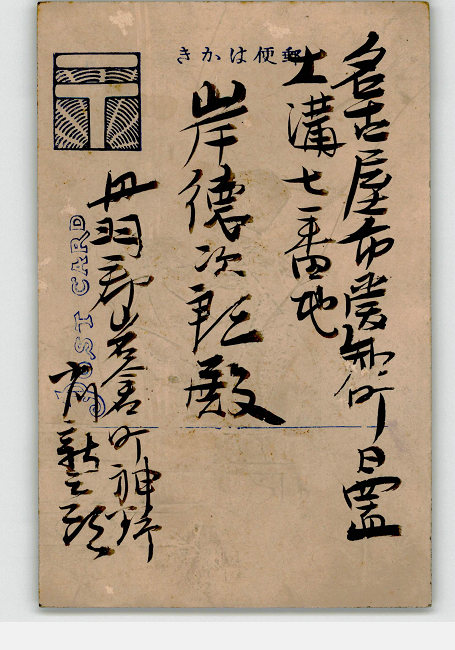 郵便はかき
名古屋市愛知町日置
溝七一番地
岸德次郎殿
丹羽郡岩倉町神野
新
POST CARD